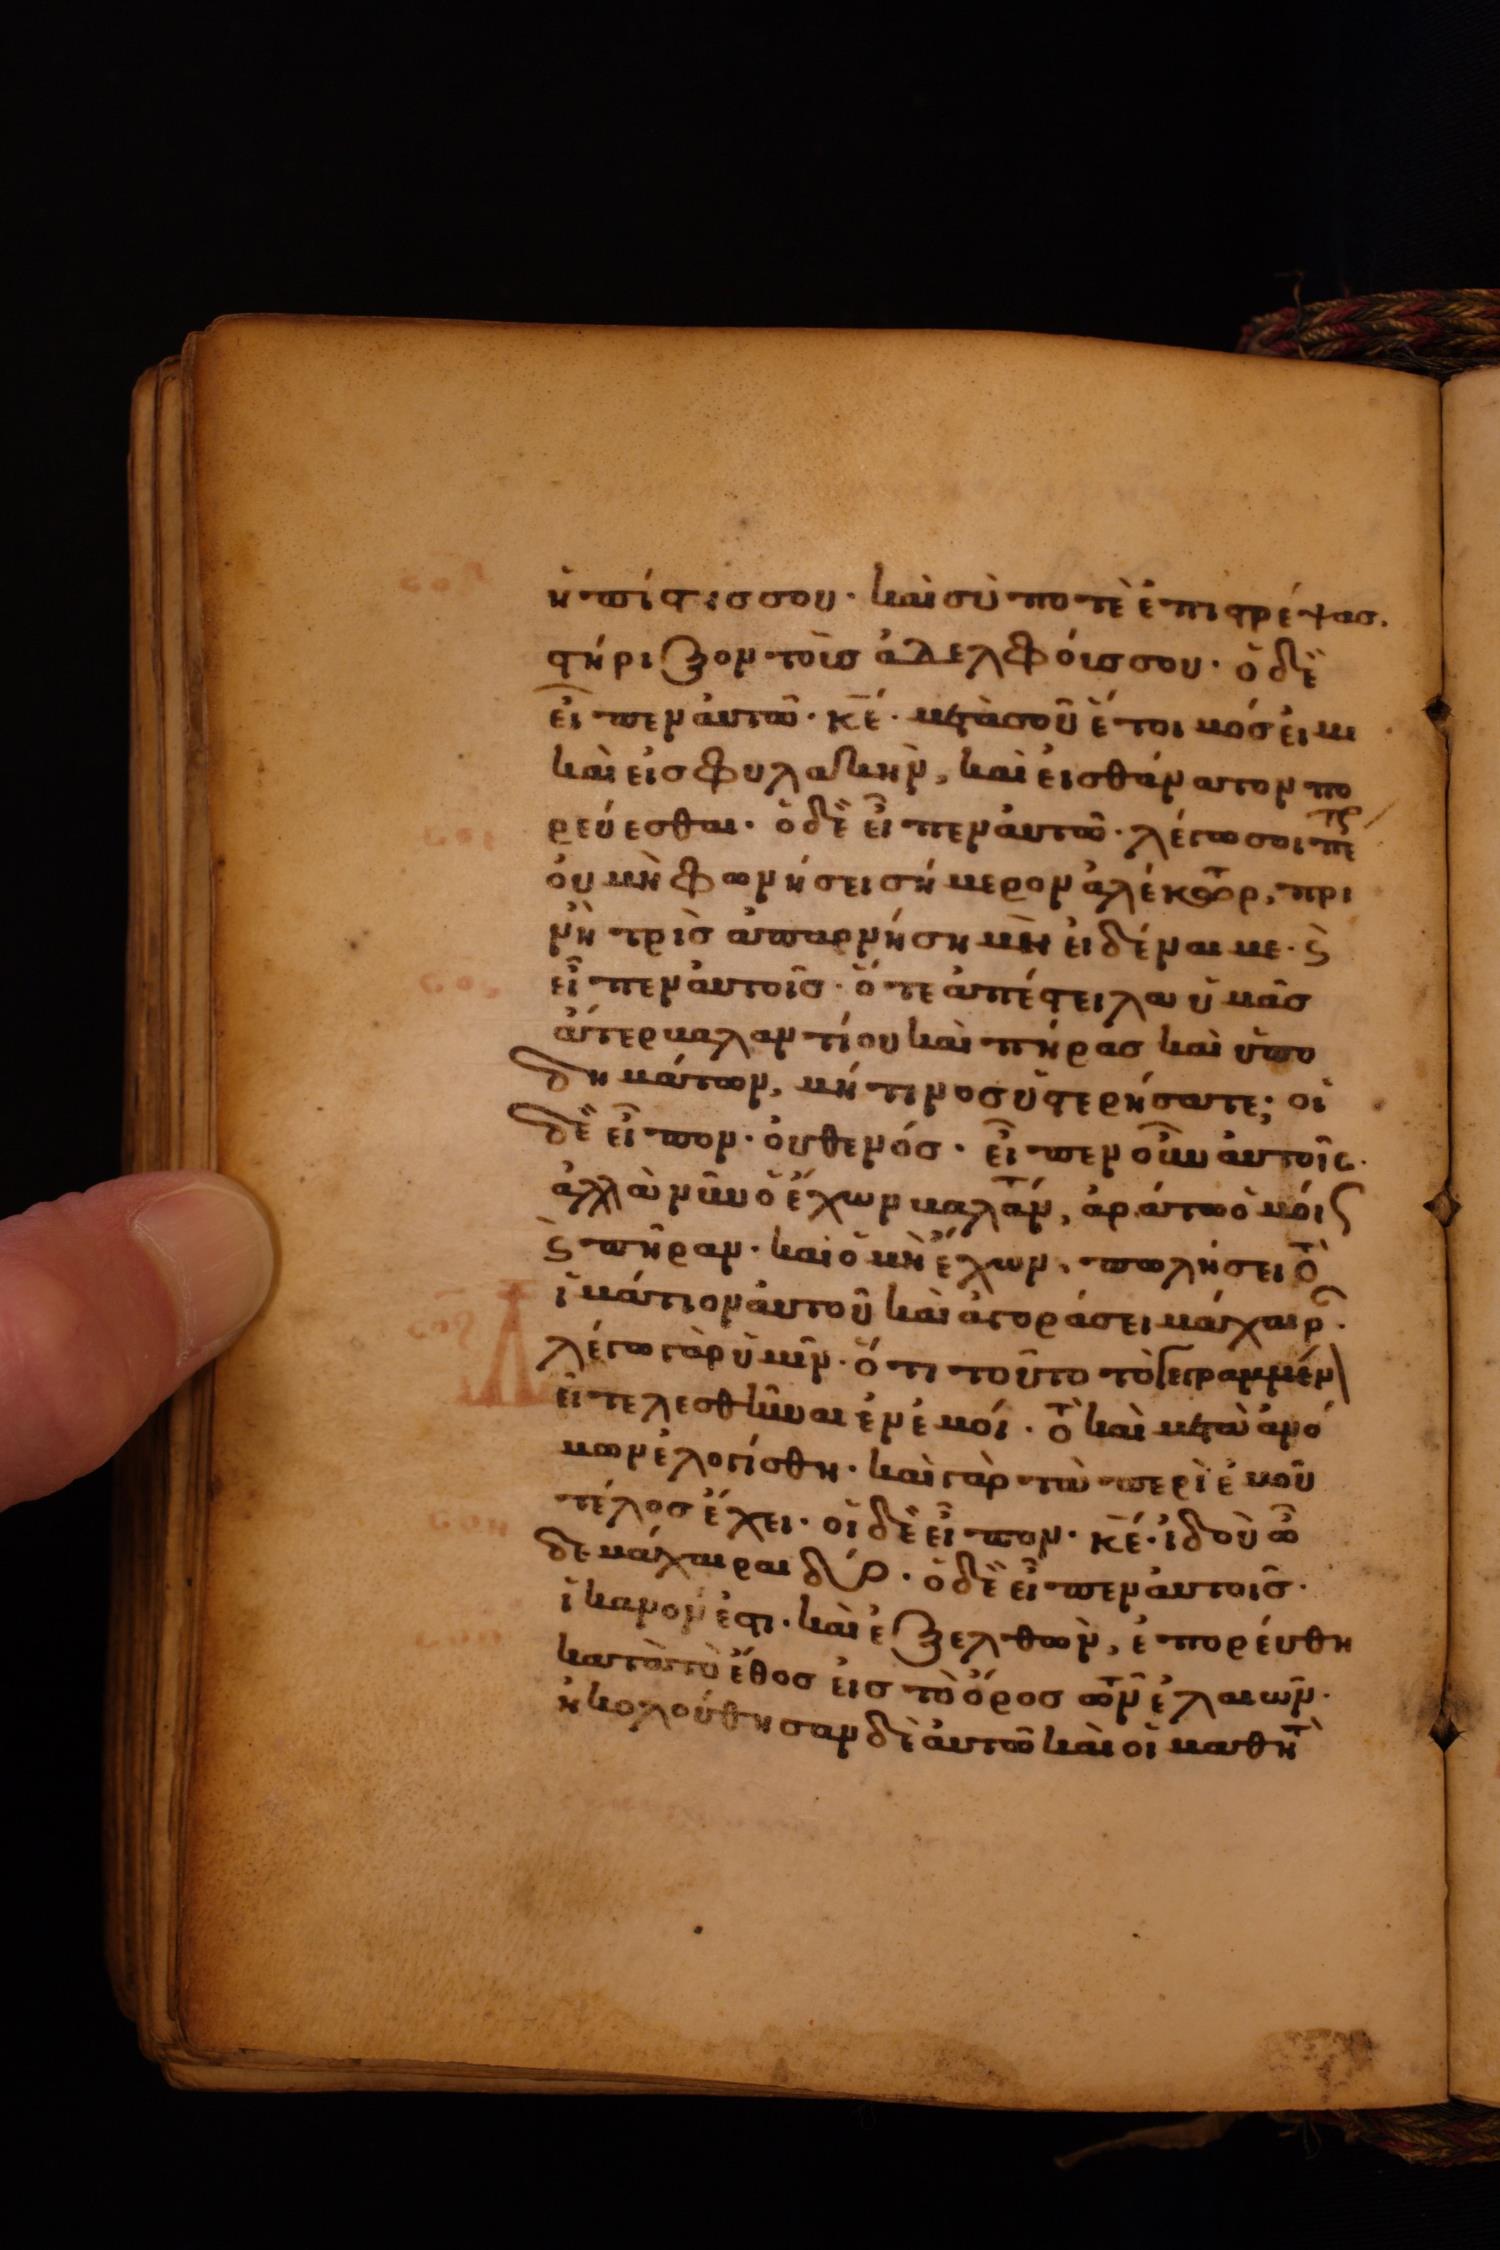 ἡ πίστισ σου· καὶ σύ ποτὲ ἐπιστρέψασ.
στήριξον τοὺσ ἀδελφούσ σου· ὁ δὲ
εἶπεν αὐτῶ· κε· μετὰ σοῦ ἕτοιμόσ εἰμι
καὶ εἰσ φυλακὴν, καὶ εἰσ θάνατον πο
ρεύεσθαι· ὁ δὲ εἶπεν αὐτῶ· λέγω σοι πετρε
οὐ μὴ φωνήσει σήμερον ἀλέκτωρ, πρι
νὴ τρὶσ ἀπαρνήση μὴ εἰδέναι με· ϛ
εἶπεν αὐτοῖσ· ὅτε ἀπέστειλα ὑμᾶσ
ἄτερ βαλαντίου καὶ πήρασ καὶ ὑπο
δημάτων, μή τινοσ ὑστερήσατε; οἱ
δὲ εἶπον· οὐθενόσ· εἶπεν οὖν αὐτοῖσ·
ἀλλὰ νῦν ὁ ἔχων βαλαντ, ἀράτω ὁμοίωσ
ϛ πῆραν· καὶ ὁ μὴ ἔχων, πωλήσει τὸ
ἱμάτιον αὐτοῦ καὶ ἀγοράσει μάχαιρ·
λέγω γὰρ ὑμῖν· ὅτι τοῦτο τὸ γεγραμμέν
εἶ τελεσθῆναι ἐν ἐμοί· τὸ καὶ μετὰ ἀνό
μων ἐλογίσθη· καὶ γὰρ τὰ περὶ ἐμοῦ
τέλοσ ἔχει· οἱ δὲ εἶπον· κε· ἰδοὺ ὧ
δε μάχαιραι δύο· ὁ δὲ εἶπεν αὐτοῖσ·
ἱκανόν ἐστι· καὶ ἐξελθὼν, ἐπορεύθη
κατὰ τὸ ἔθοσ εἰσ τὸ ὄροσ τῶν ἐλαιῶν·
ἠκολούθησαν δὲ αὐτῶ καὶ οἱ μαθητ